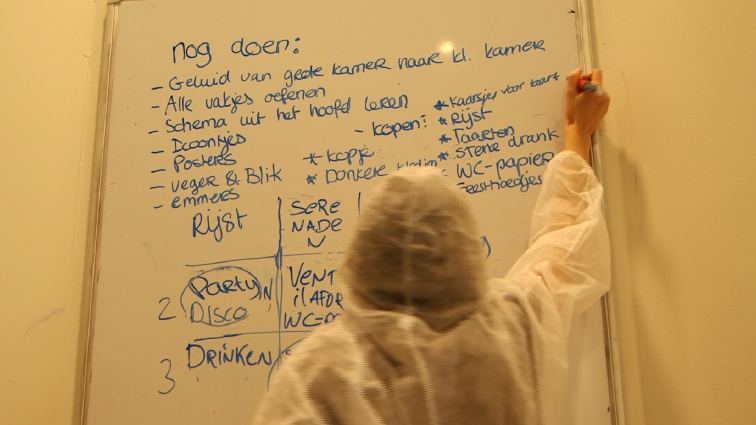 nog doen:
- Geluid van grote kamer naar kl. kamer
- Alle vakjes oefenen
- Schema uit het hoofd leren
- Icoontjes
- Posters
- veger & Blik
- emmers
- kopen:
* kopje
* Donkere
* kaarsjes voor taart
* Rijst
* Taarten
* sterke drank
WC-papier
feesthoedjes
Rijst
SERE
NADE
N
2 Party
DISCO
VENT
ilAFOR
WC-
3 DRINKEN